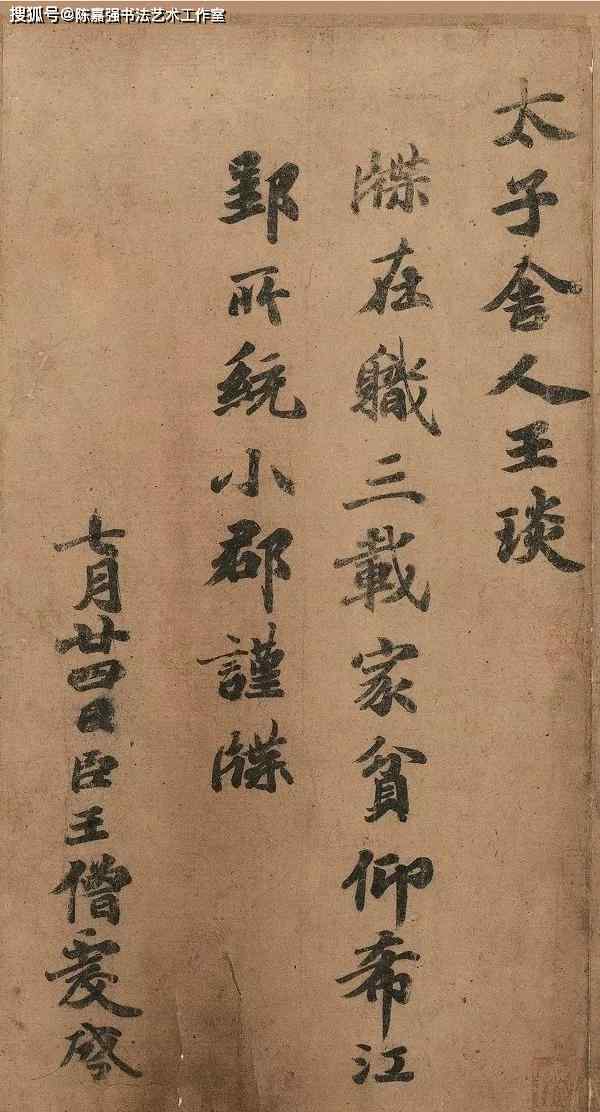 搜狐号@陈嘉强书法艺术工作室
太子舍人王琰
牒在職三載家貧仰希江
郢所統小郡謹牒
七月廿四日臣王僧虔啓